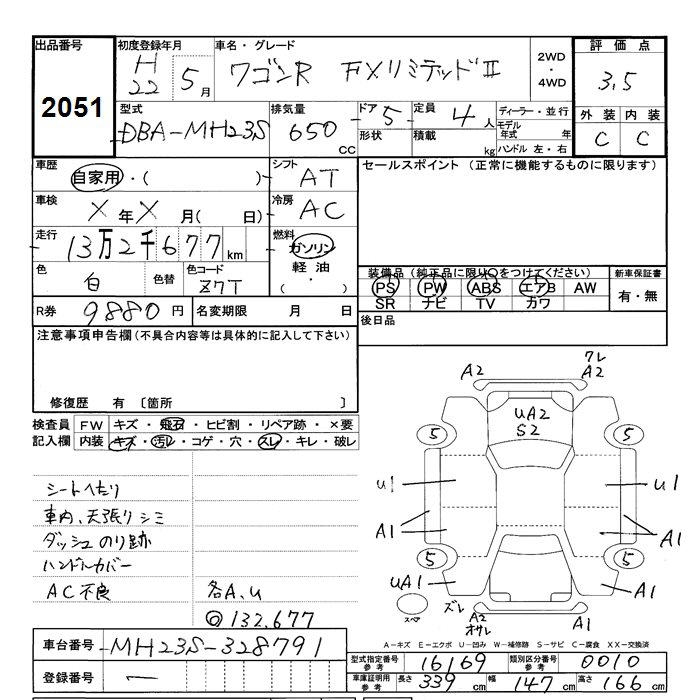 出品番号
2051
初度登録年月
H22 5月
車名・グレード
ワゴンR FXリミテッドⅡ
2WD
・
4WD
評価点
3.5
外装 内装
C C
型式
DBA-MH23S
排気量
650 cc
ドア 5
形状
定員 4人
積載 kg
ディーラー・並行
モデル年式 年
ハンドル 左・右
車歴
自家用・( )
シフト
AT
車検
X年X月( 日)
冷房
AC
走行
13万2千677km
燃料
ガソリン
軽油
・( )
色
白
色替
色コード
Z7T
R券 9880円
名変期限 月 日
セールスポイント (正常に機能するものに限ります)
装備品 (純正品に限り○をつけてください)
PS PW ABS エアB AW
SR ナビ TV カワ
新車保証書
有・無
後日品
注意事項申告欄(不具合内容等は具体的に記入して下さい)
修復歴 有 〔箇所 〕
検査員記入欄
FW キズ・飛石・ヒビ割・リペア跡・×要
内装 キズ・汚レ・コゲ・穴・スレ・キレ・破レ
シートへたり
車内、天張りシミ
ダッシュのり跡
ハンドルカバー
AC不良
各A、U
◎132,677
A2
ワレ
A2
UA2
S2
5
5
U1
U1
A1
A1
5
5
UA1
A1
スペア
ズレ
A2
オサレ
A1
A-キズ E-エクボ U-凹み W-補修跡 S-サビ C-腐食 XX-交換済
車台番号 MH23S-328791
登録番号 ー
型式指定番号 参考 16169
類別区分番号 参考 0010
車庫証明用 参考 長さ 339cm 幅 147cm 高さ 166cm